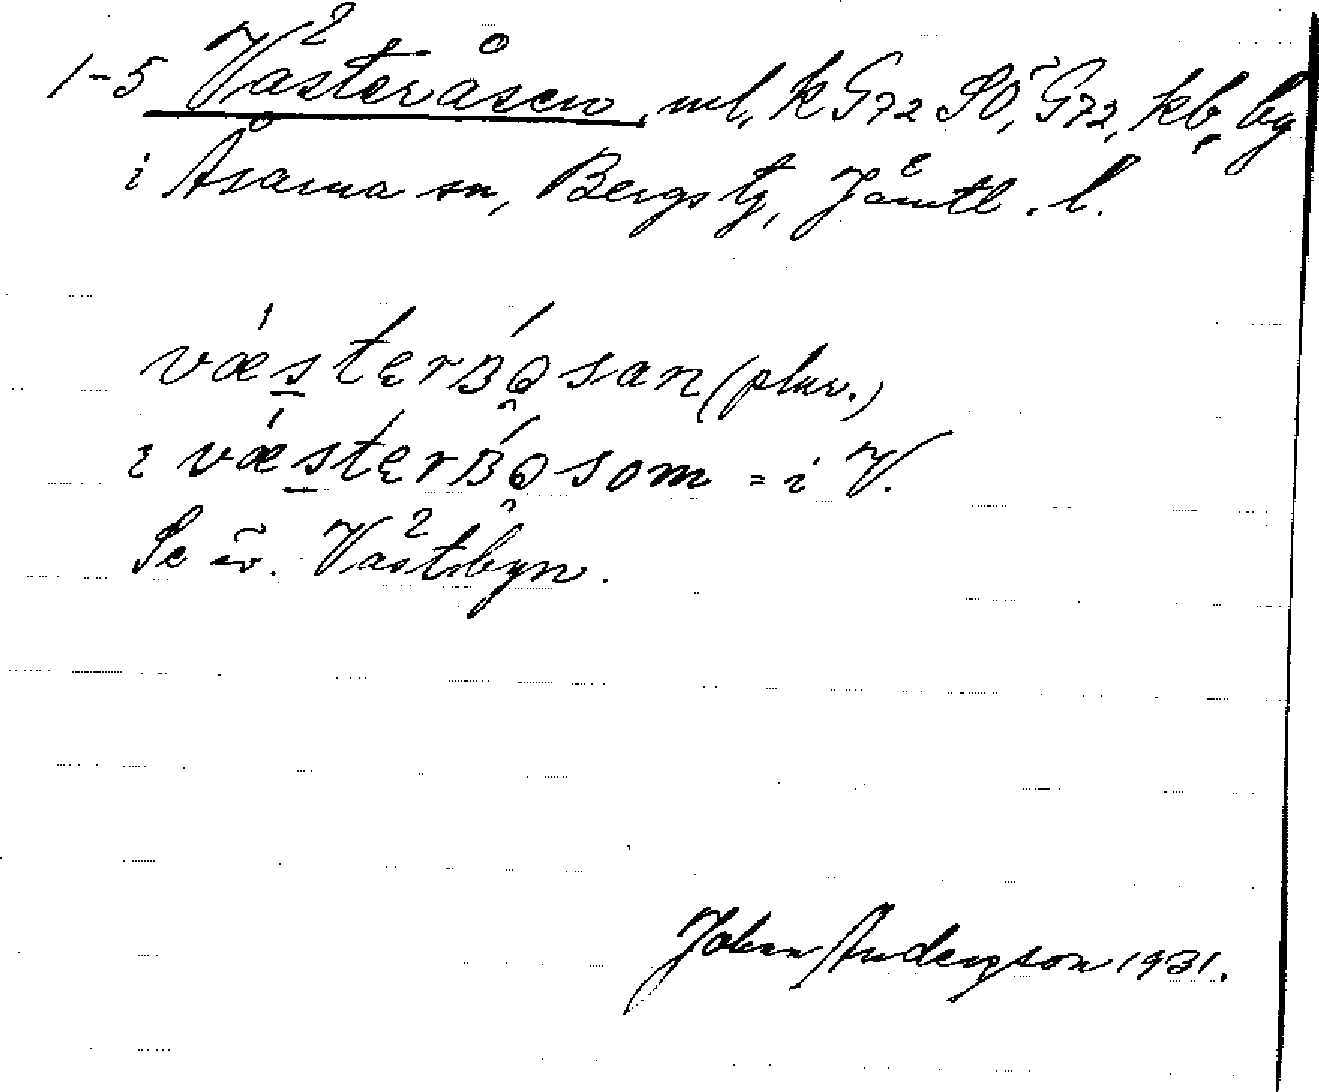 1-5 Västeråsen, ml, k G72 SÖ, G72, kb, by
i Åsarna sn, Bergs tg, Jämtl. l.
vǽstęrʙǫ́san (plur.)
ɩ vǽstęrʙǫ́som = i V.
Se äv. Västbyn.
Johan Anderson 1931.